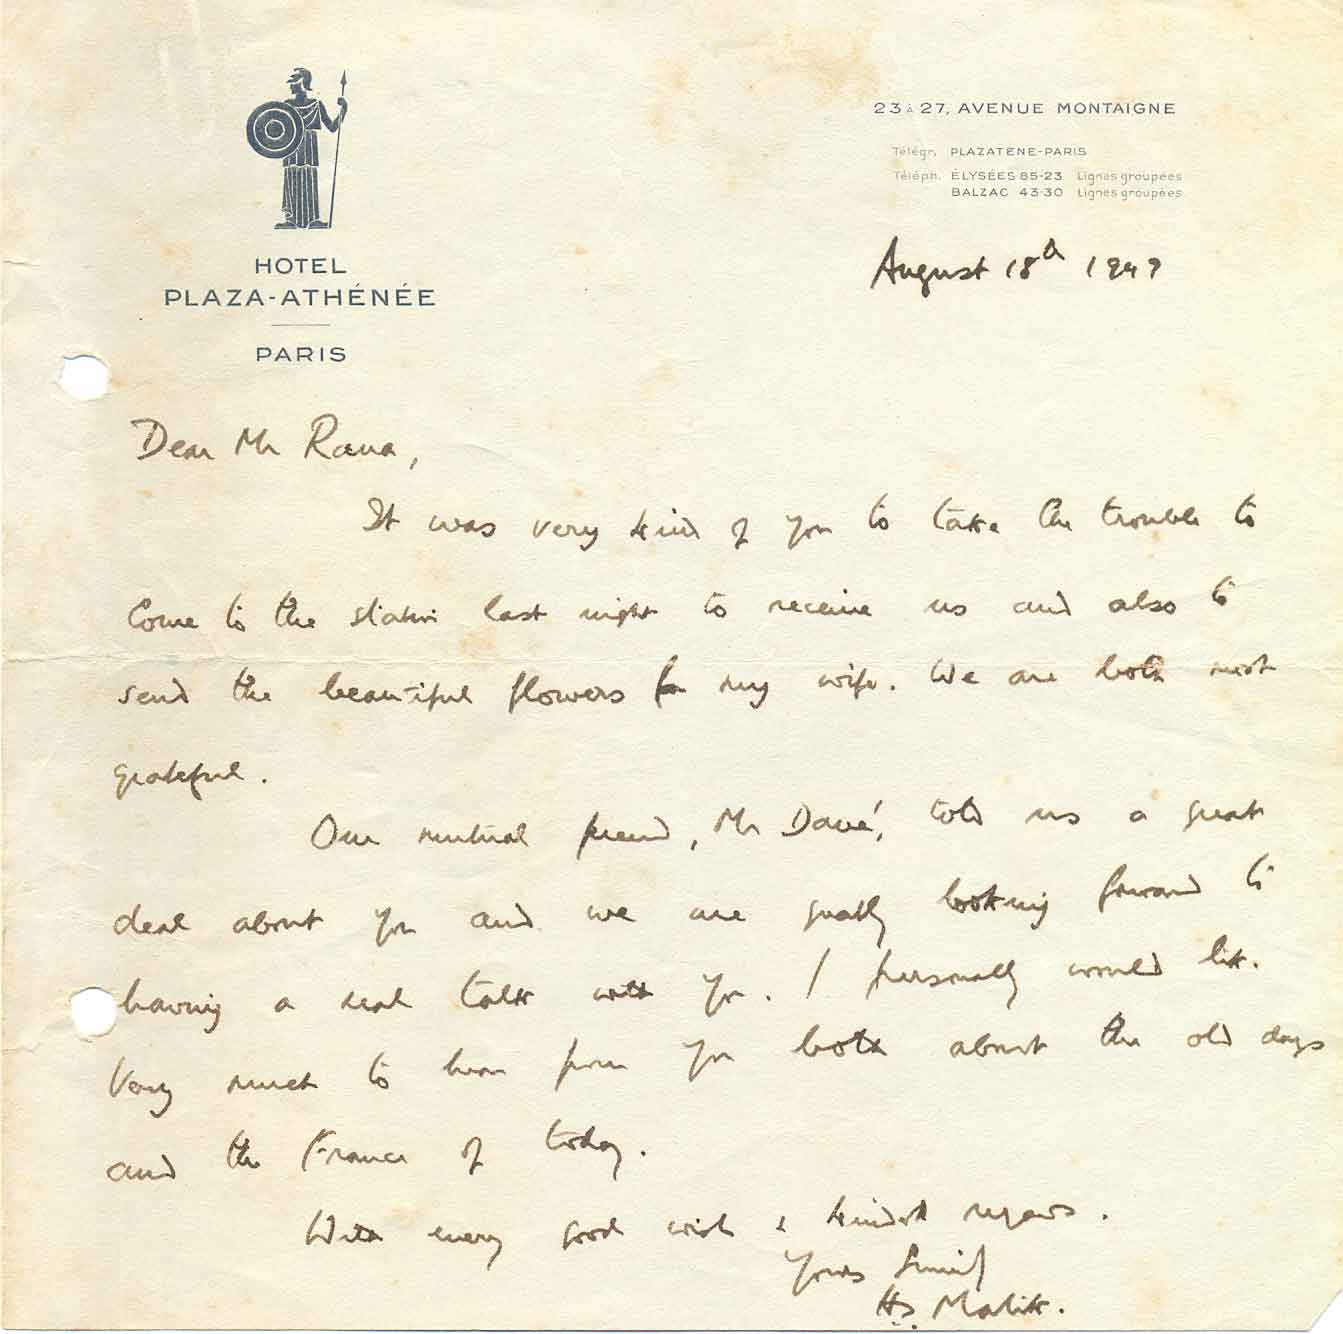 HOTEL
PLAZA-ATHÉNÉE
PARIS
23 à 27, AVENUE MONTAIGNE
Télégr. PLAZATENE-PARIS
Téléph. ÉLYSÉES 85-23 Lignes groupées
BALZAC 43-30 Lignes groupées
August 18th 1949
Dear Mr Rana,
It was very kind of you to take the trouble to
come to the station last night to receive us and also to
send the beautiful flowers for my wife. We are both most
grateful.
Our mutual friend, Mr Davé, told us a great
deal about you and we are greatly looking forward to
having a real talk with you. I personally would like
very much to hear from you both about the old days
and the France of today.
With every good wish & kindest regards.
Yours Sincly
HS. Malik.